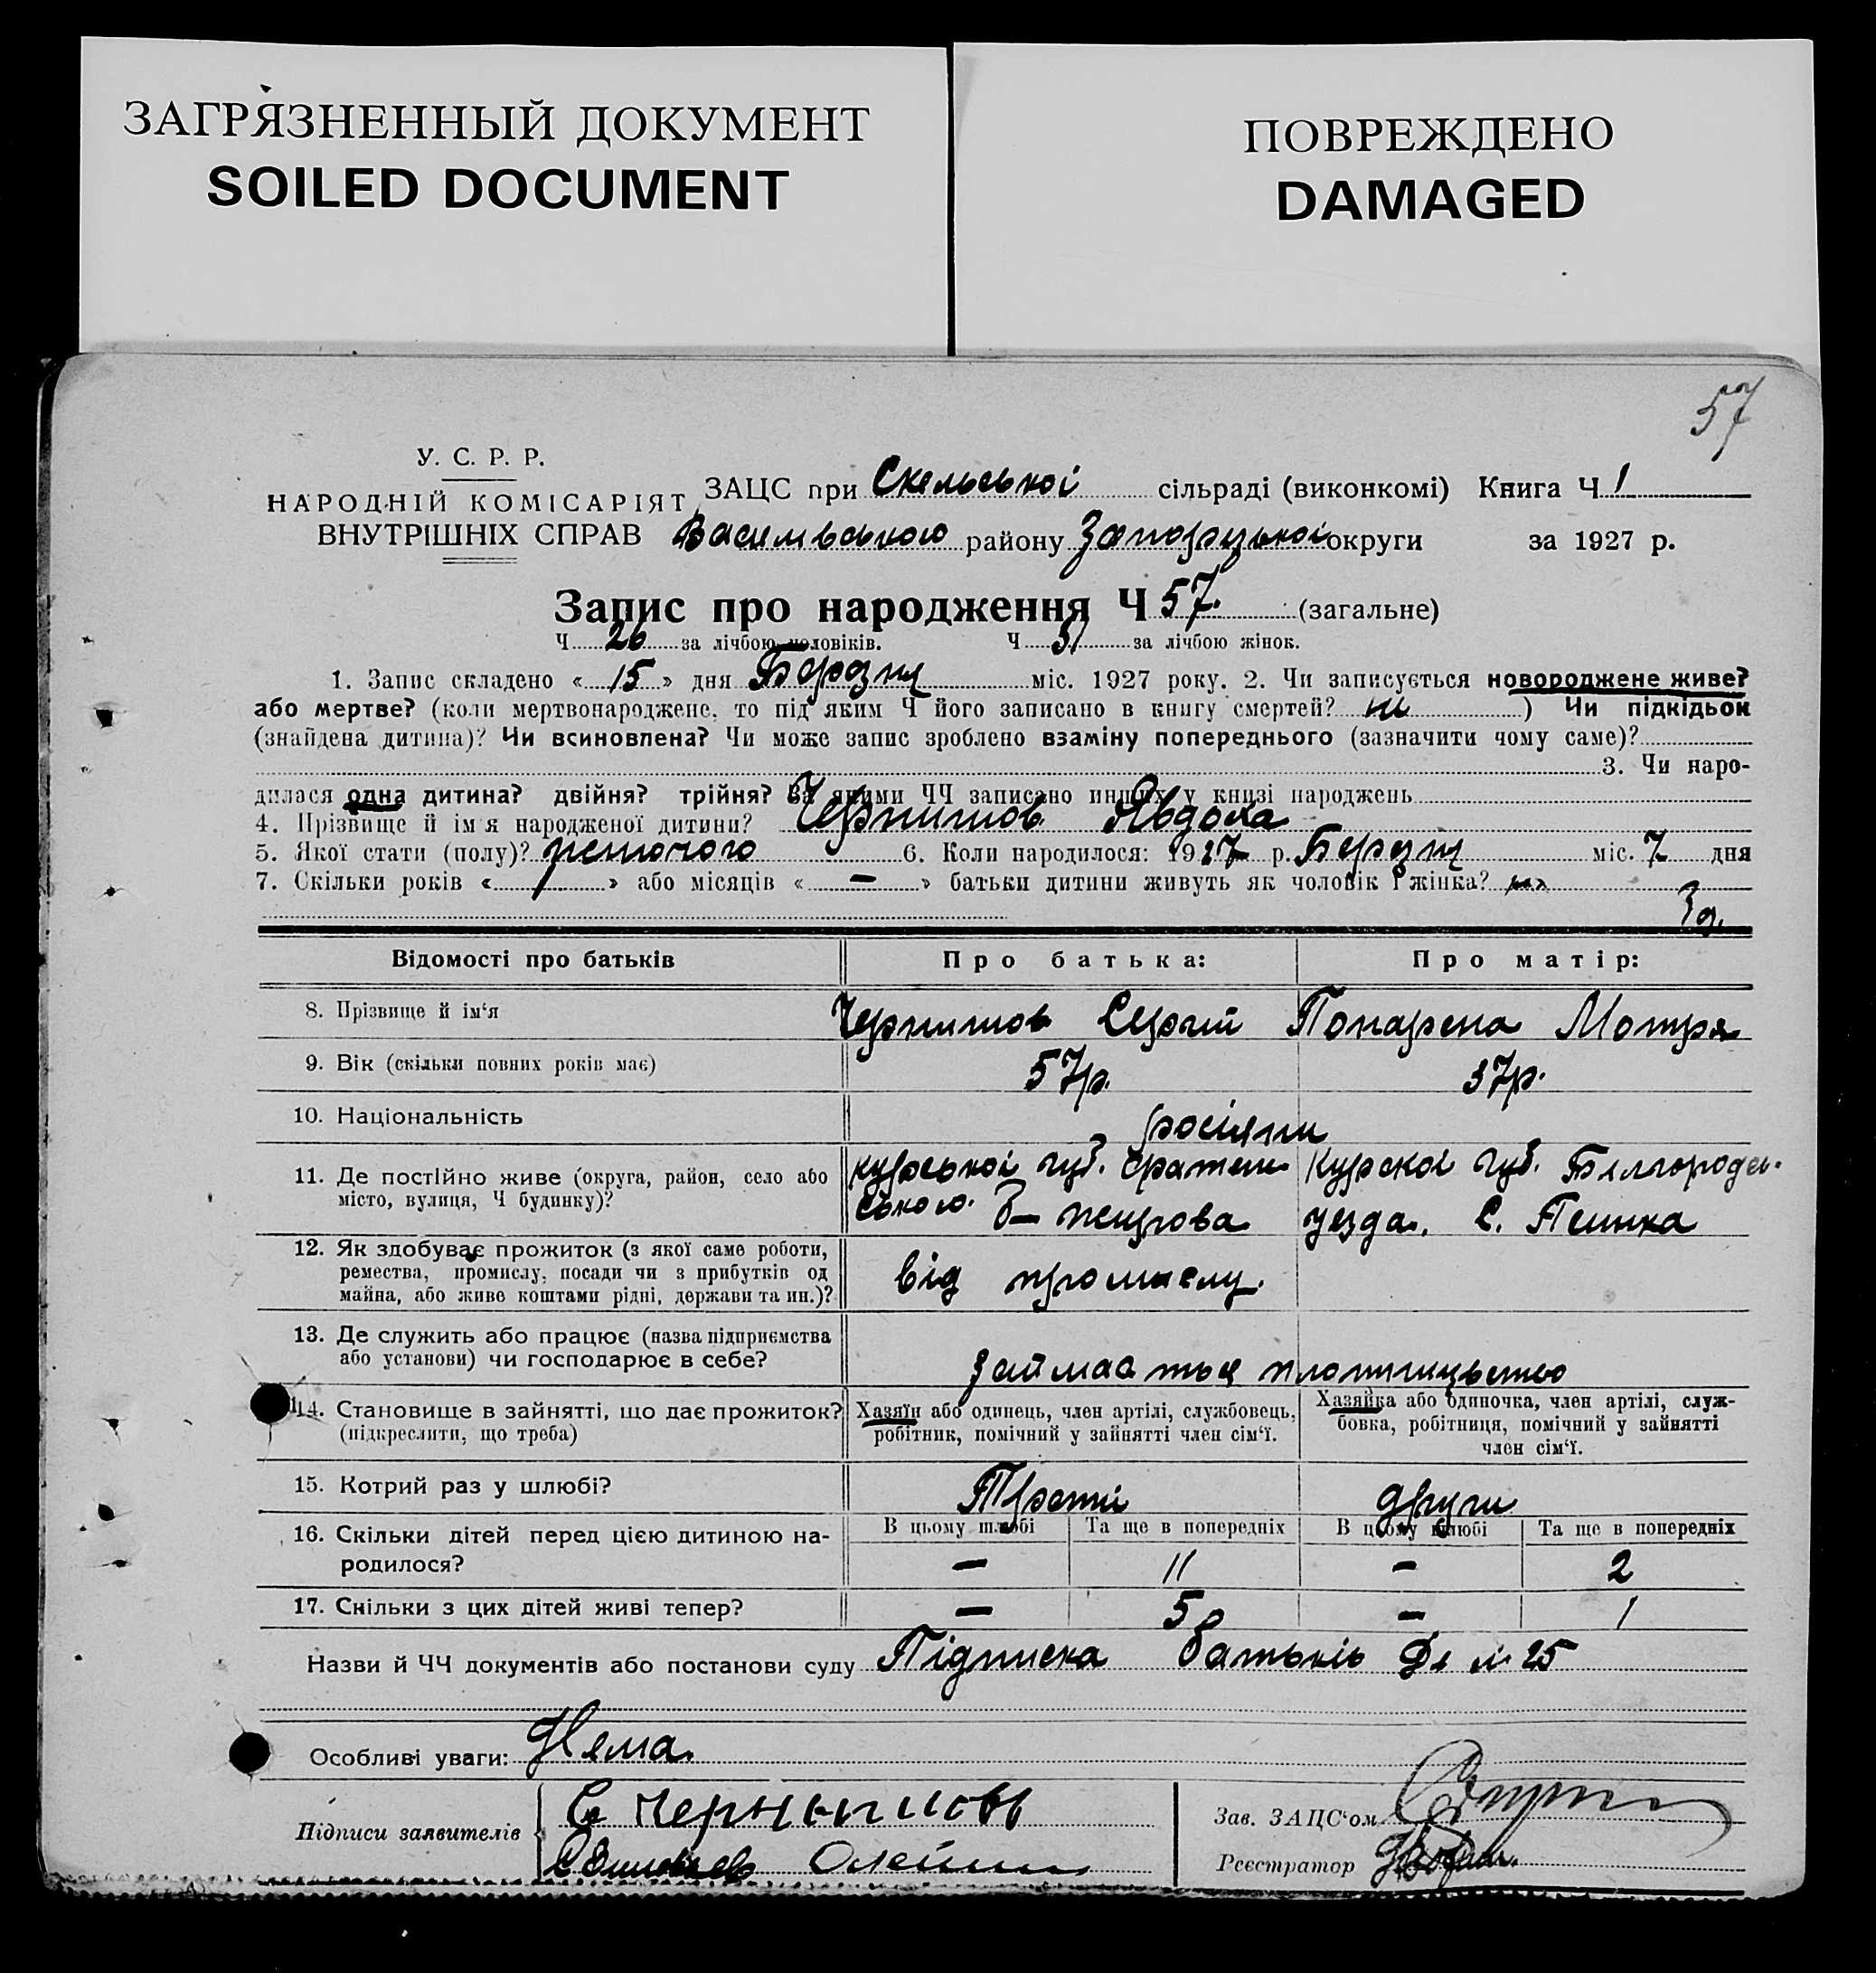 ЗАГРЯЗНЕННЫЙ ДОКУМЕНТ
SOILED DOCUMENT
ПОВРЕЖДЕНО
DAMAGED
57
У. С. Р. Р.
НАРОДНІЙ КОМІСАРІЯТ
ВНУТРІШНІХ СПРАВ
ЗАЦС при Скельської сільраді (виконкомі) Книга Ч 1
Василівського району Запорізької округи за 1927 р.
Запис про народження Ч 57. (загальне)
Ч 26 за лічбою чоловіків. Ч 31 за лічбою жінок.
1. Запис складено « 15 » дня Березня міс. 1927 року. 2. Чи записується новороджене живе?
або мертве? (коли мертвонароджене, то під яким Ч його записано в книгу смертей? ні ) Чи підкідьок
(знайдена дитина)? Чи всиновлена? Чи може запис зроблено взаміну попереднього (зазначити чому саме)?
3. Чи наро-
дилася одна дитина? двійня? трійня? За якими ЧЧ записано инших у книзі народжень
4. Прізвище й ім'я народженої дитини? Чернишов Явдоха
5. Якої стати (полу)? жіночого 6. Коли народилося: 1927 р. Березня міс. 7 дня
7. Скільки років « / » або місяців « — » батьки дитини живуть як чоловік і жінка?
Відомості про батьків
Про батька:
Про матір:
8. Прізвище й ім'я
Чернишов Сергій
Понарена Мотря
9. Вік (скільки повних років має)
57р.
37р.
10. Національність
росіяни
11. Де постійно живе (округа, район, село або
місто, вулиця, Ч будинку)?
Курської губ.
ського.
Курскої губ. Білгородсь.
уезда. С. Пеинка
12. Як здобуває прожиток (з якої саме роботи,
ремества, промислу, посади чи з прибутків од
майна, або живе коштами рідні, держави та ин.)?
від промислу.
13. Де служить або працює (назва підприємства
або установи) чи господарює в себе?
займаеться плотницьство
14. Становище в зайнятті, що дає прожиток?
(підкреслити, що треба)
Хазяїн або одинець, член артілі, службовець,
робітник, помічний у зайнятті член сім'ї.
Хазяйка або одиночка, член артілі, служ-
бовка, робітниця, помічний у зайнятті
член сім'ї.
15. Котрий раз у шлюбі?
Третій
други
16. Скільки дітей перед цією дитиною на-
родилося?
В цьому шлюбі
Та ще в попередніх
В цьому шлюбі
Та ще в попередніх
—
11
—
2
17. Скільки з цих дітей живі тепер?
—
5
—
1
Назви й ЧЧ документів або постанови суду Підписка батьків Дл № 25
Особливі уваги: Нема.
Підписи заявителів
С Чернышовъ
Олейник
Зав. ЗАЦС'ом
Реєстратор